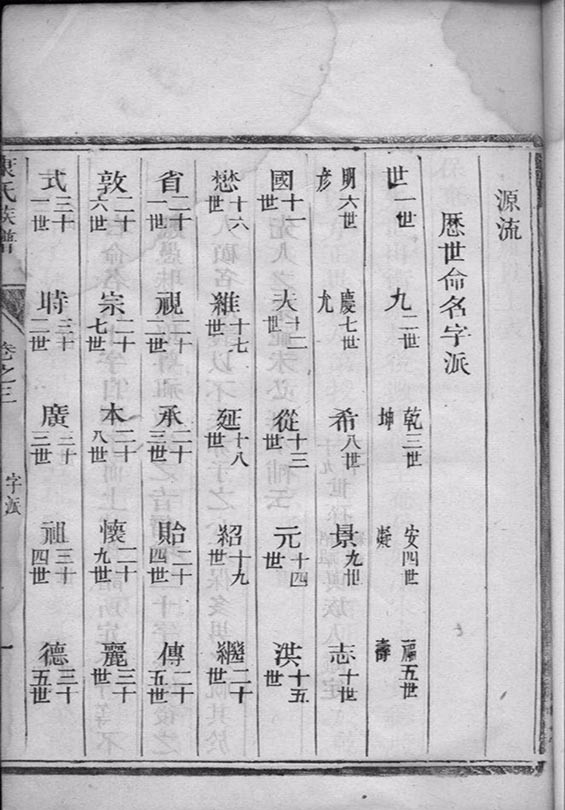 源流
歷世命名字派
世一世 九二世 乾坤三世 安凝四世 福壽五世
明彥六世 慶允七世 希八世 景九世 志十世
國十一世 大十二世 從十三世 元十四世 洪十五世
懋十六世 維十七世 延十八世 紹十九世 繼二十世
省二十一世 視二十二世 承二十三世 貽二十四世 傳二十五世
敦二十六世 宗二十七世 本二十八世 懷二十九世 麗三十世
式三十一世 時三十二世 廣三十三世 祖三十四世 德三十五世
氏族譜 卷之三 字派 一